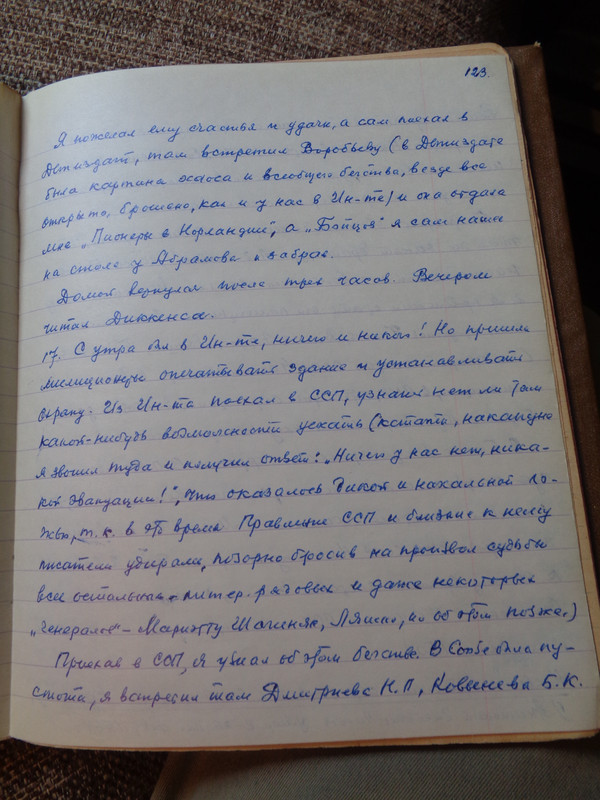 123.
Я пожелал ему счастья и удачи, а сам поехал в
Детиздат, там встретил Воробьеву (в Детиздате
была картина хаоса и всеобщего бегства, везде все
открыто, брошено, как и у нас в Ин-те) и она отдала
мне „Пионеры в Норландии", а „Бойцов" я сам нашел
на столе у Абрамова и забрал.
Домой вернулся после трех часов. Вечером
читал Диккенса.
17. С утра был в Ин-те, ничего и никого! Но пришли
милиционеры опечатывать здание и устанавливать
охрану. Из Ин-та поехал в ССП, узнать нет ли там
какой-нибудь возможности уехать (кстати, накануне
я звонил туда и получил ответ: „Ничего у нас нет, ника-
кой эвакуации!", что оказалось дикой и нахальной ло-
жью, т.к. в это время Правление ССП и близкие к нему
писатели удирали, позорно бросив на произвол судьбы
всех остальных литер. рядовых и даже некоторых
„генералов" – Мариэтту Шагинян, Ляшко, но об этом позже.)
Приехав в ССП, я узнал об этом бегстве. В Союзе была пу-
стота, я встретил там Дмитриева Н.П., Ковынева Б.К.